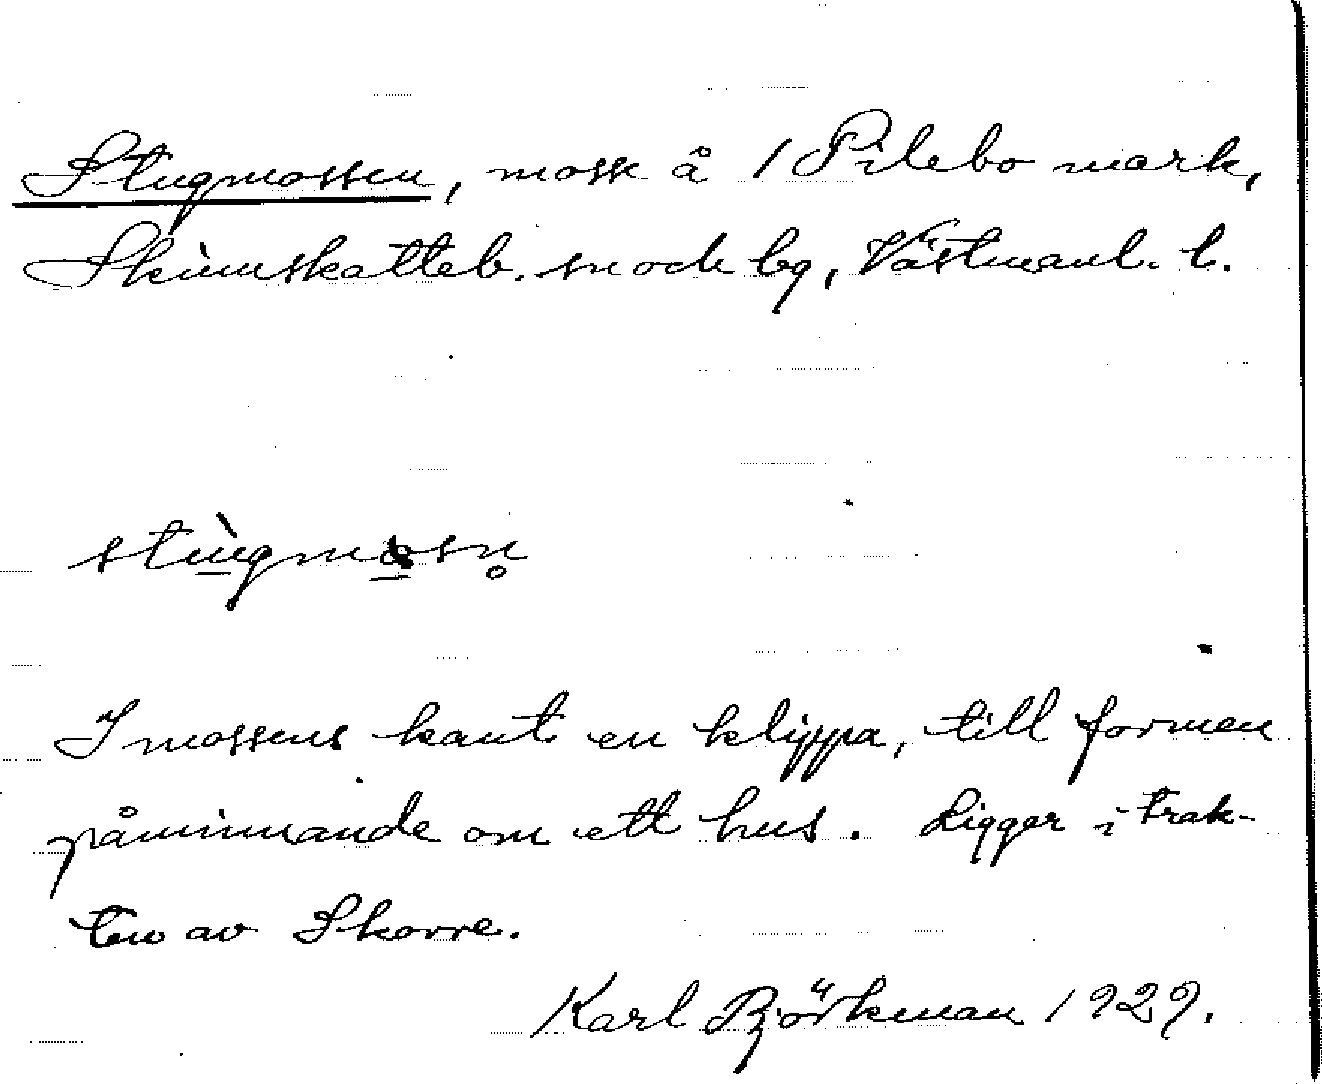 Stugmossen, mosse å 1 Pilebo mark,
Skinnskatteb. sn och bg, Västmanl. l.
stùgmosn̥
I mossens kant en klippa, till formen
påminnande om ett hus. Ligger i trak-
ten av Skorre.
Karl Björkman 1929.